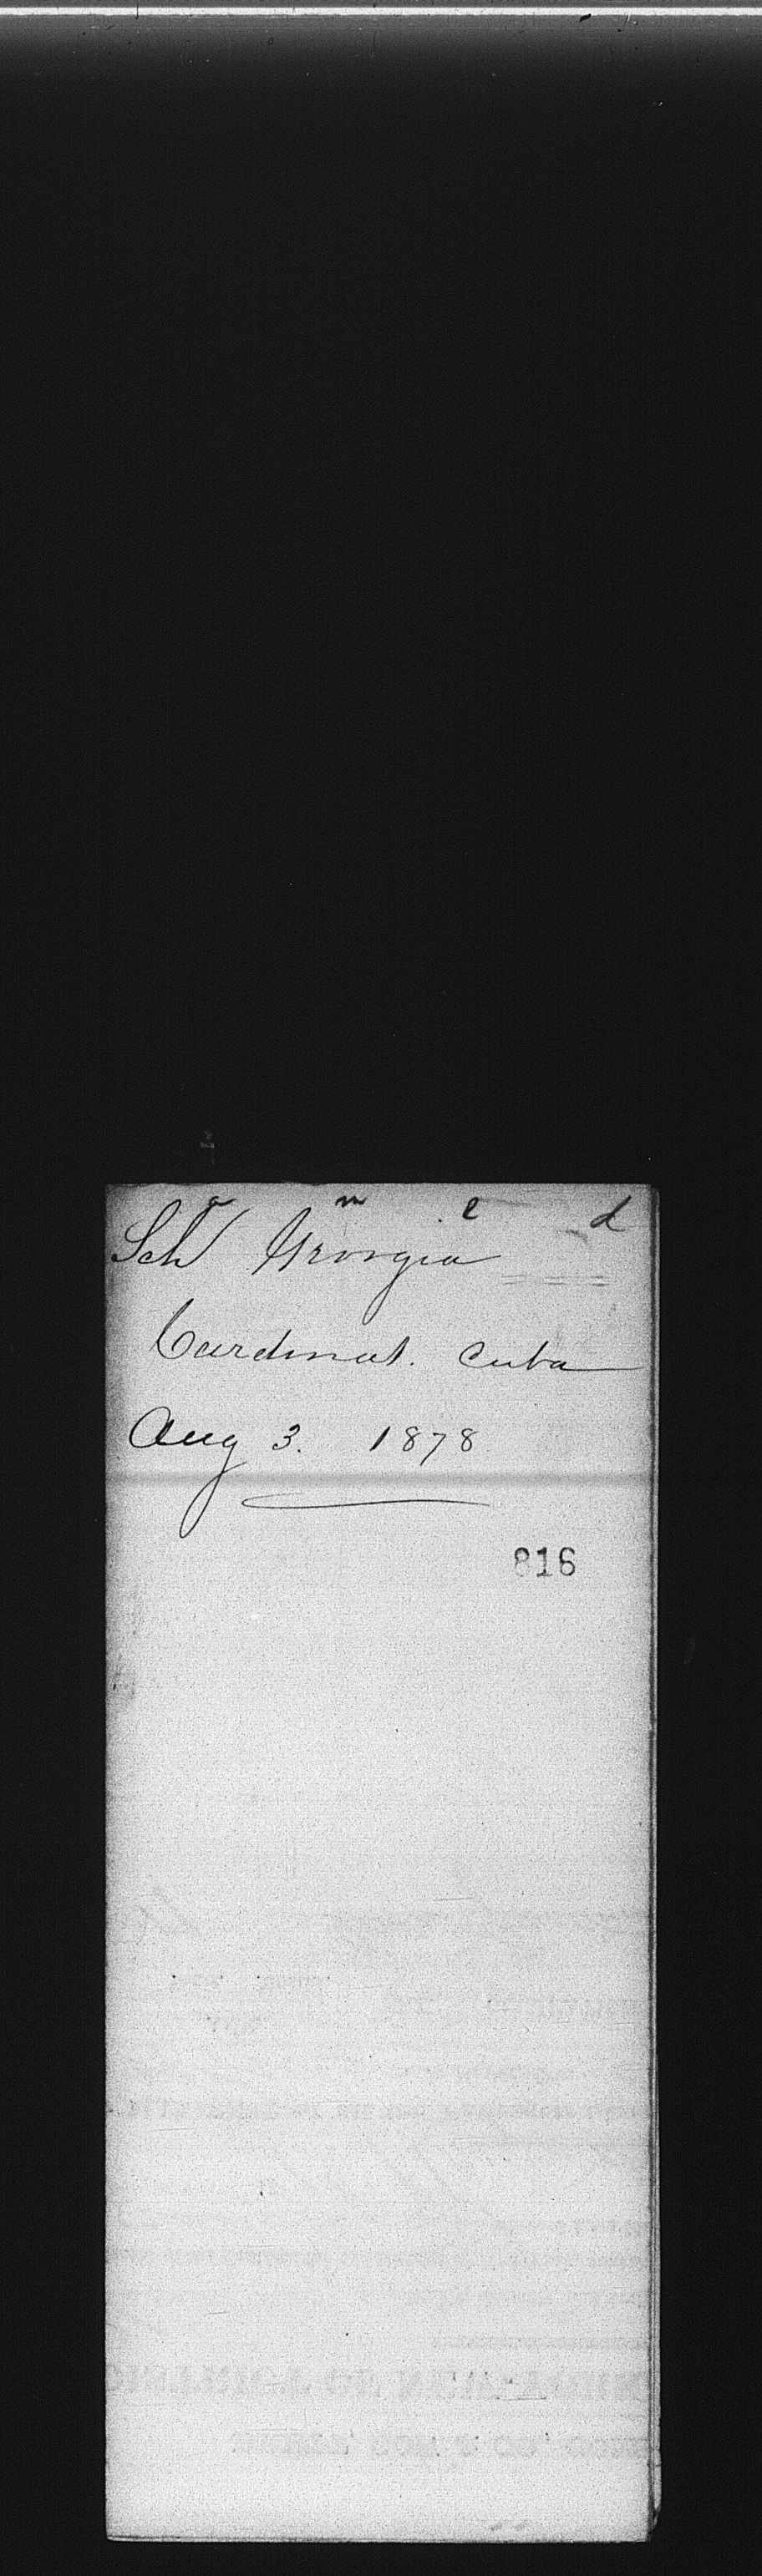 a n e d
Sch Georgia
Cardinas. Cuba
Aug 3. 1878
816